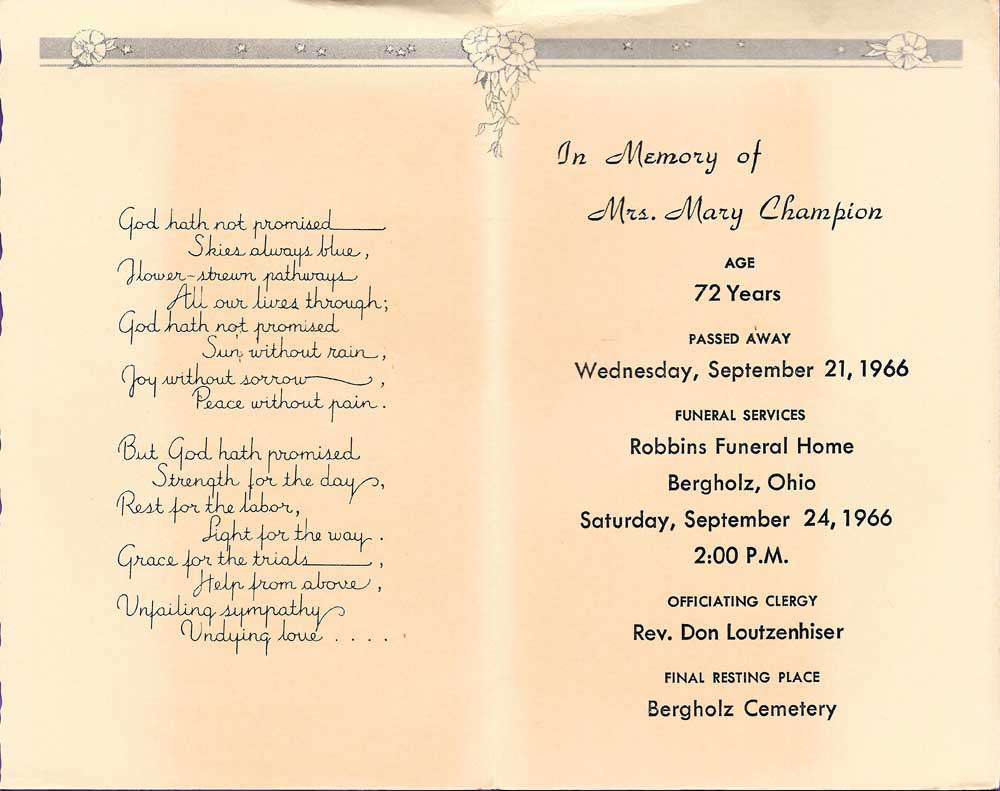 God hath not promised
Skies always blue,
Flower-strewn pathways
All our lives through;
God hath not promised
Sun without rain,
Joy without sorrow,
Peace without pain.
But God hath promised
Strength for the day,
Rest for the labor,
Light for the way.
Grace for the trials,
Help from above,
Unfailing sympathy
Undying love . . . .
In Memory of
Mrs. Mary Champion
AGE
72 Years
PASSED AWAY
Wednesday, September 21, 1966
FUNERAL SERVICES
Robbins Funeral Home
Bergholz, Ohio
Saturday, September 24, 1966
2:00 P.M.
OFFICIATING CLERGY
Rev. Don Loutzenhiser
FINAL RESTING PLACE
Bergholz Cemetery